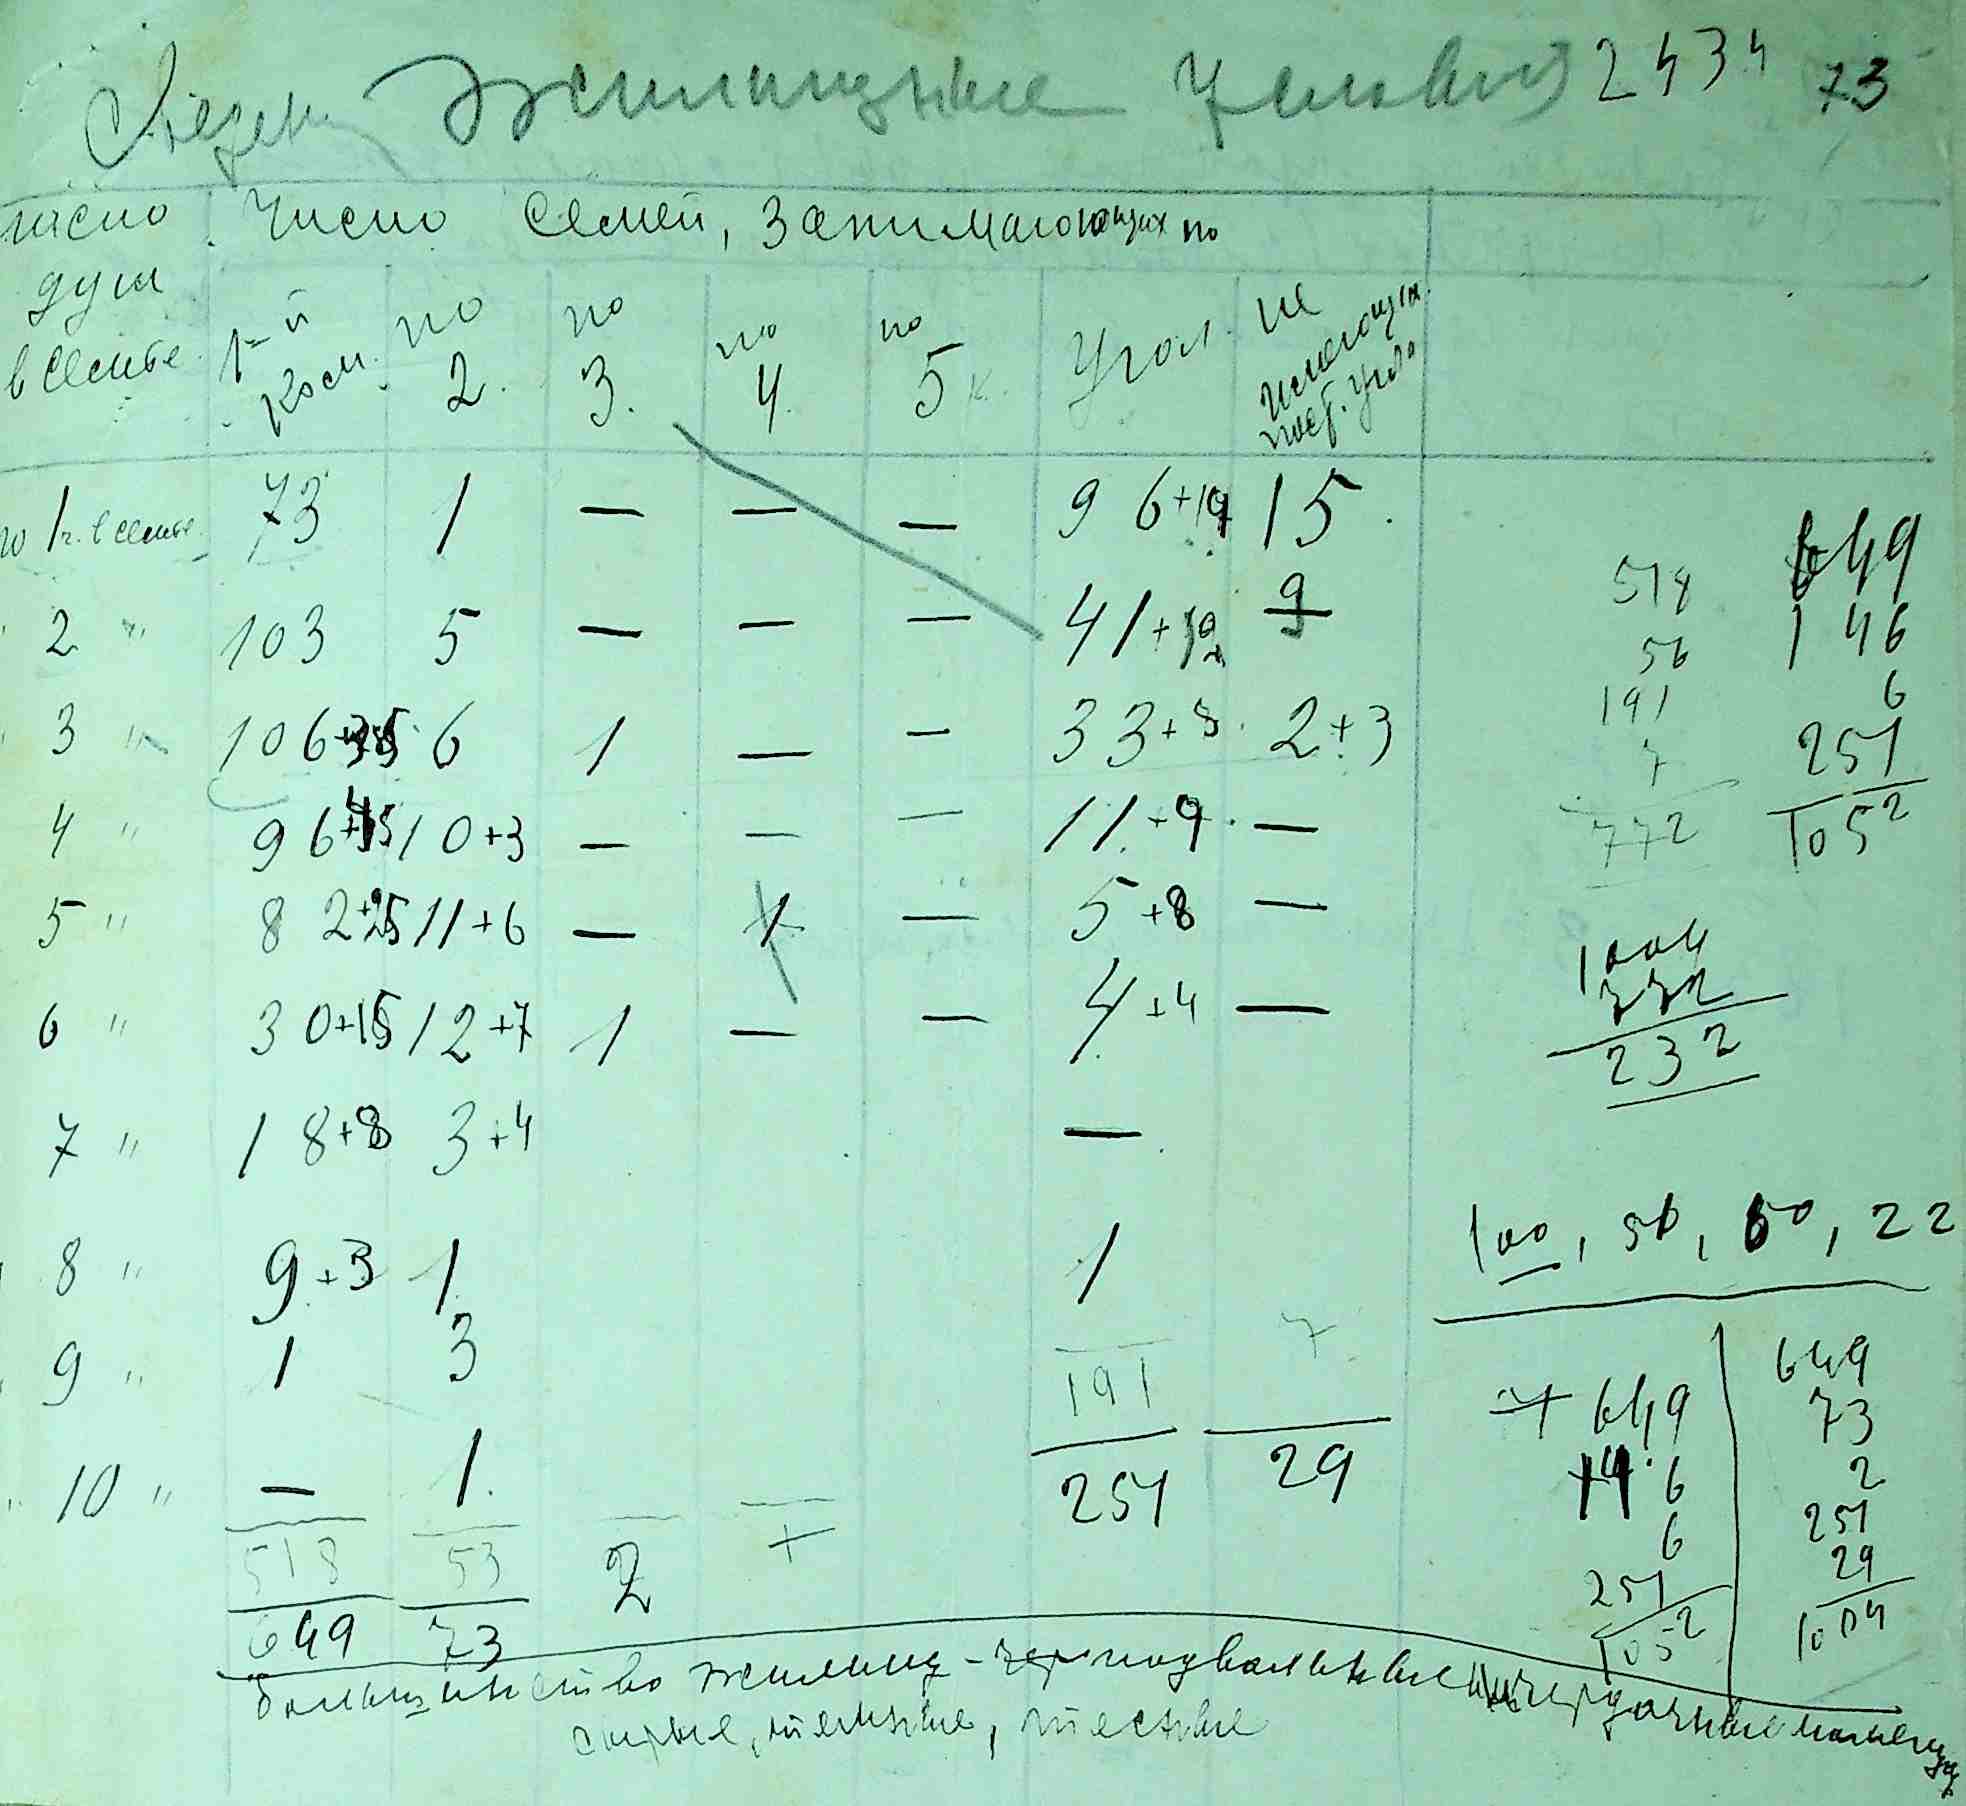 Жилищные Условия 2434 73
число Число семей, занимающих по
душ
в семье
1-й комн. по 2. по 3. по 4. по 5 к. Угол. не имеющих пост. угла
по 1 ч. в семье 73 1 — — — 96+19 15
2 " 103 5 — — — 41+12 9
3 " 106+35 6 1 — — 33+8 2+3
4 " 96+15 10+3 — — — 11+9 —
5 " 82+25 11+6 — 1 — 5+8 —
6 " 30+15 12+7 1 — — 4+4 —
7 " 18+8 3+4 —
8 " 9+3 1 1
9 " 1 3
10 " — 1
191 7
251 29
518 53
649 73 2
518 649
56 146
191 6
7 251
772 1052
1004
772
232
100, 56, 60, 22
649
6
6
251
1052
649
73
2
251
29
1004
большинство жилищ - подвальные чердачные помещ
сырые, темные, тесные